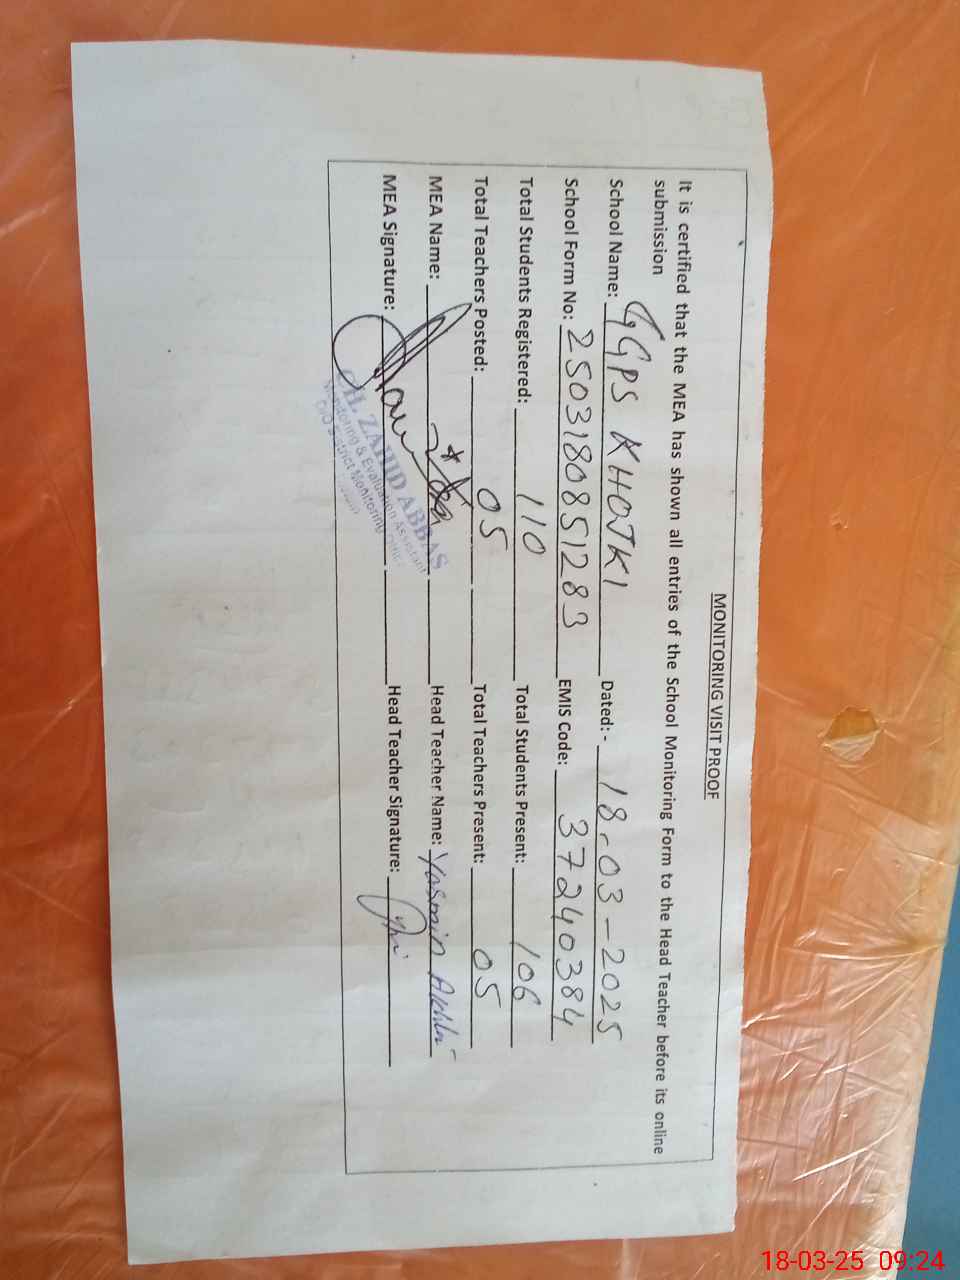 MONITORING VISIT PROOF
It is certified that the MEA has shown all entries of the School Monitoring Form to the Head Teacher before its online
submission
School Name: GGPS KHOJKI Dated:- 18-03-2025
School Form No: 2503180851283 EMIS Code: 37240384
Total Students Registered: 110 Total Students Present: 106
Total Teachers Posted: 05 Total Teachers Present: 05
MEA Name: Head Teacher Name: Yasmin Akhtar
MEA Signature: Head Teacher Signature:
ZAHID ABBAS
Monitoring & Evaluation Assistant
O/O District Monitoring Officer
18-03-25 09:24